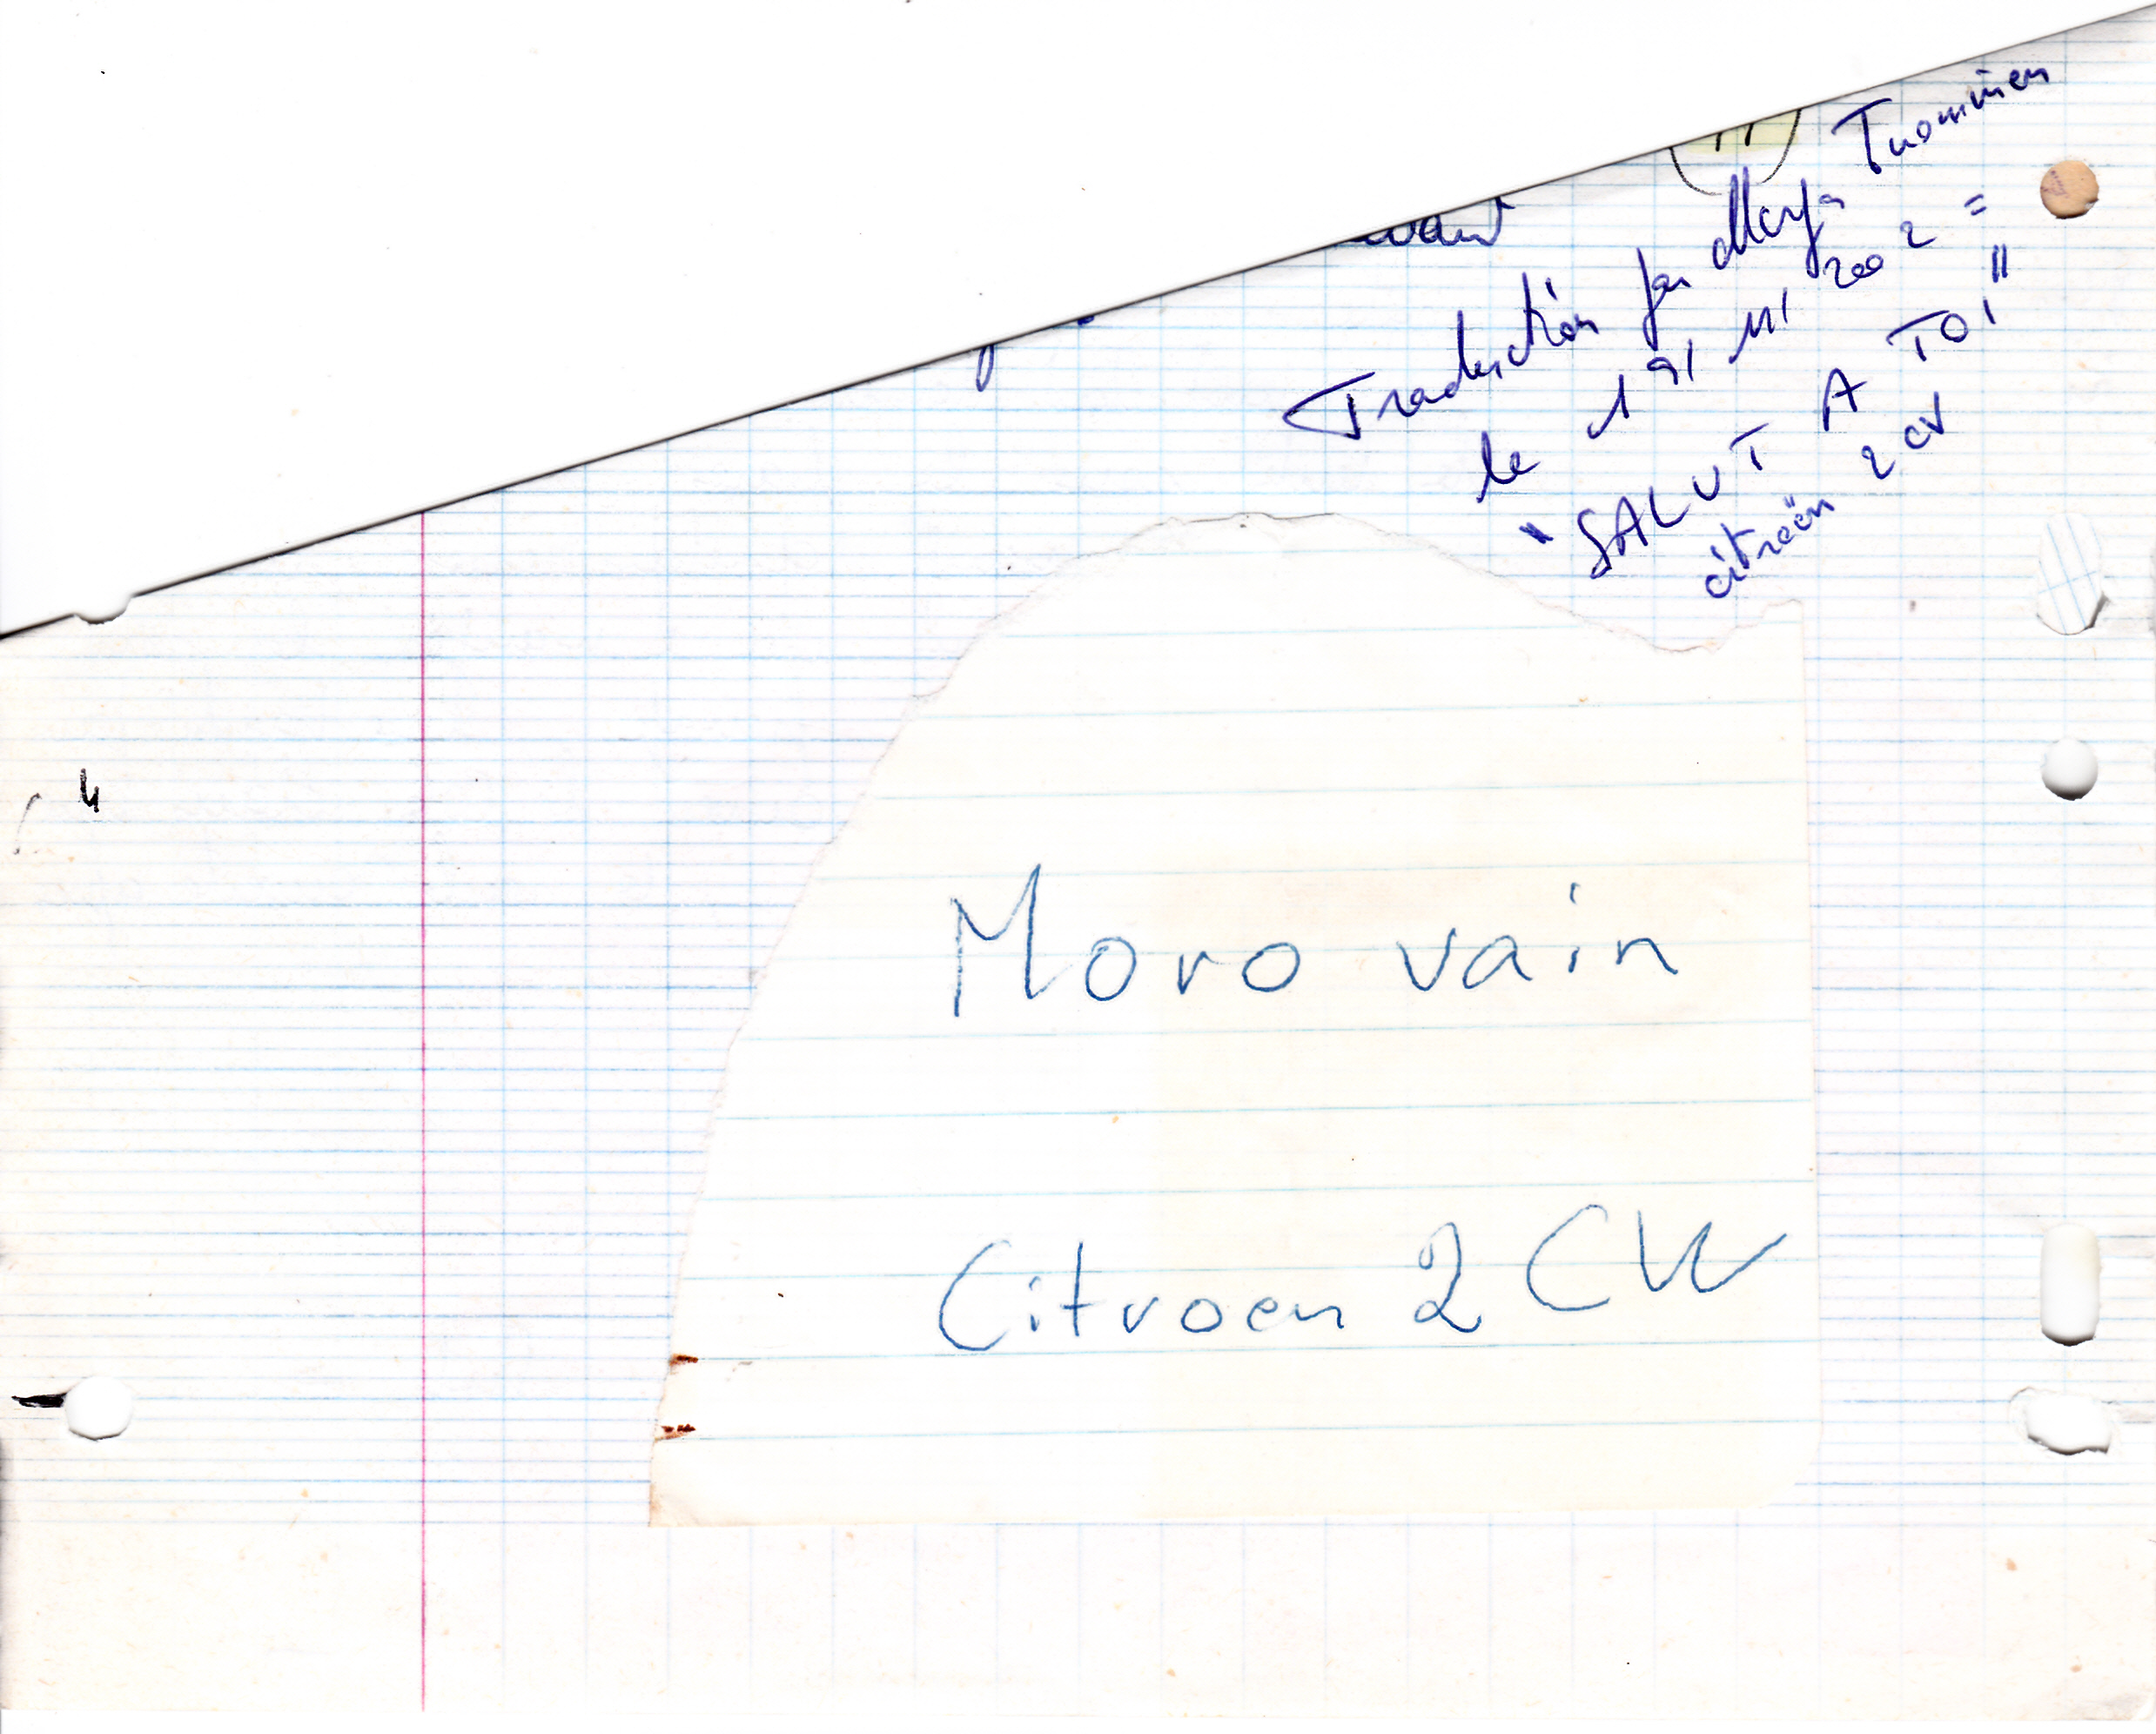 Traduction par Marja Tuominen
le 1 91 2002 =
"SALUT A TOI"
citroën 2 CV
4
Moro vain
Citroen 2 CW